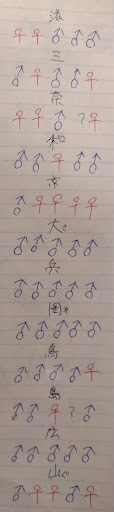 滋
♀♀♂♂♂
三
♂♀♂♂♀
奈
♀♀♂?♀
和
♂♂♀♂♂
京
♂♀♀♀♀
大
♂♂♂♂♂
兵
♂♂♂♂♂
岡
♂♂♂♂♂
鳥
♂♂♂♂♀
島
♂♂♀?♂
広
♂♂♂♂♂
山
♂♀♀♂♀